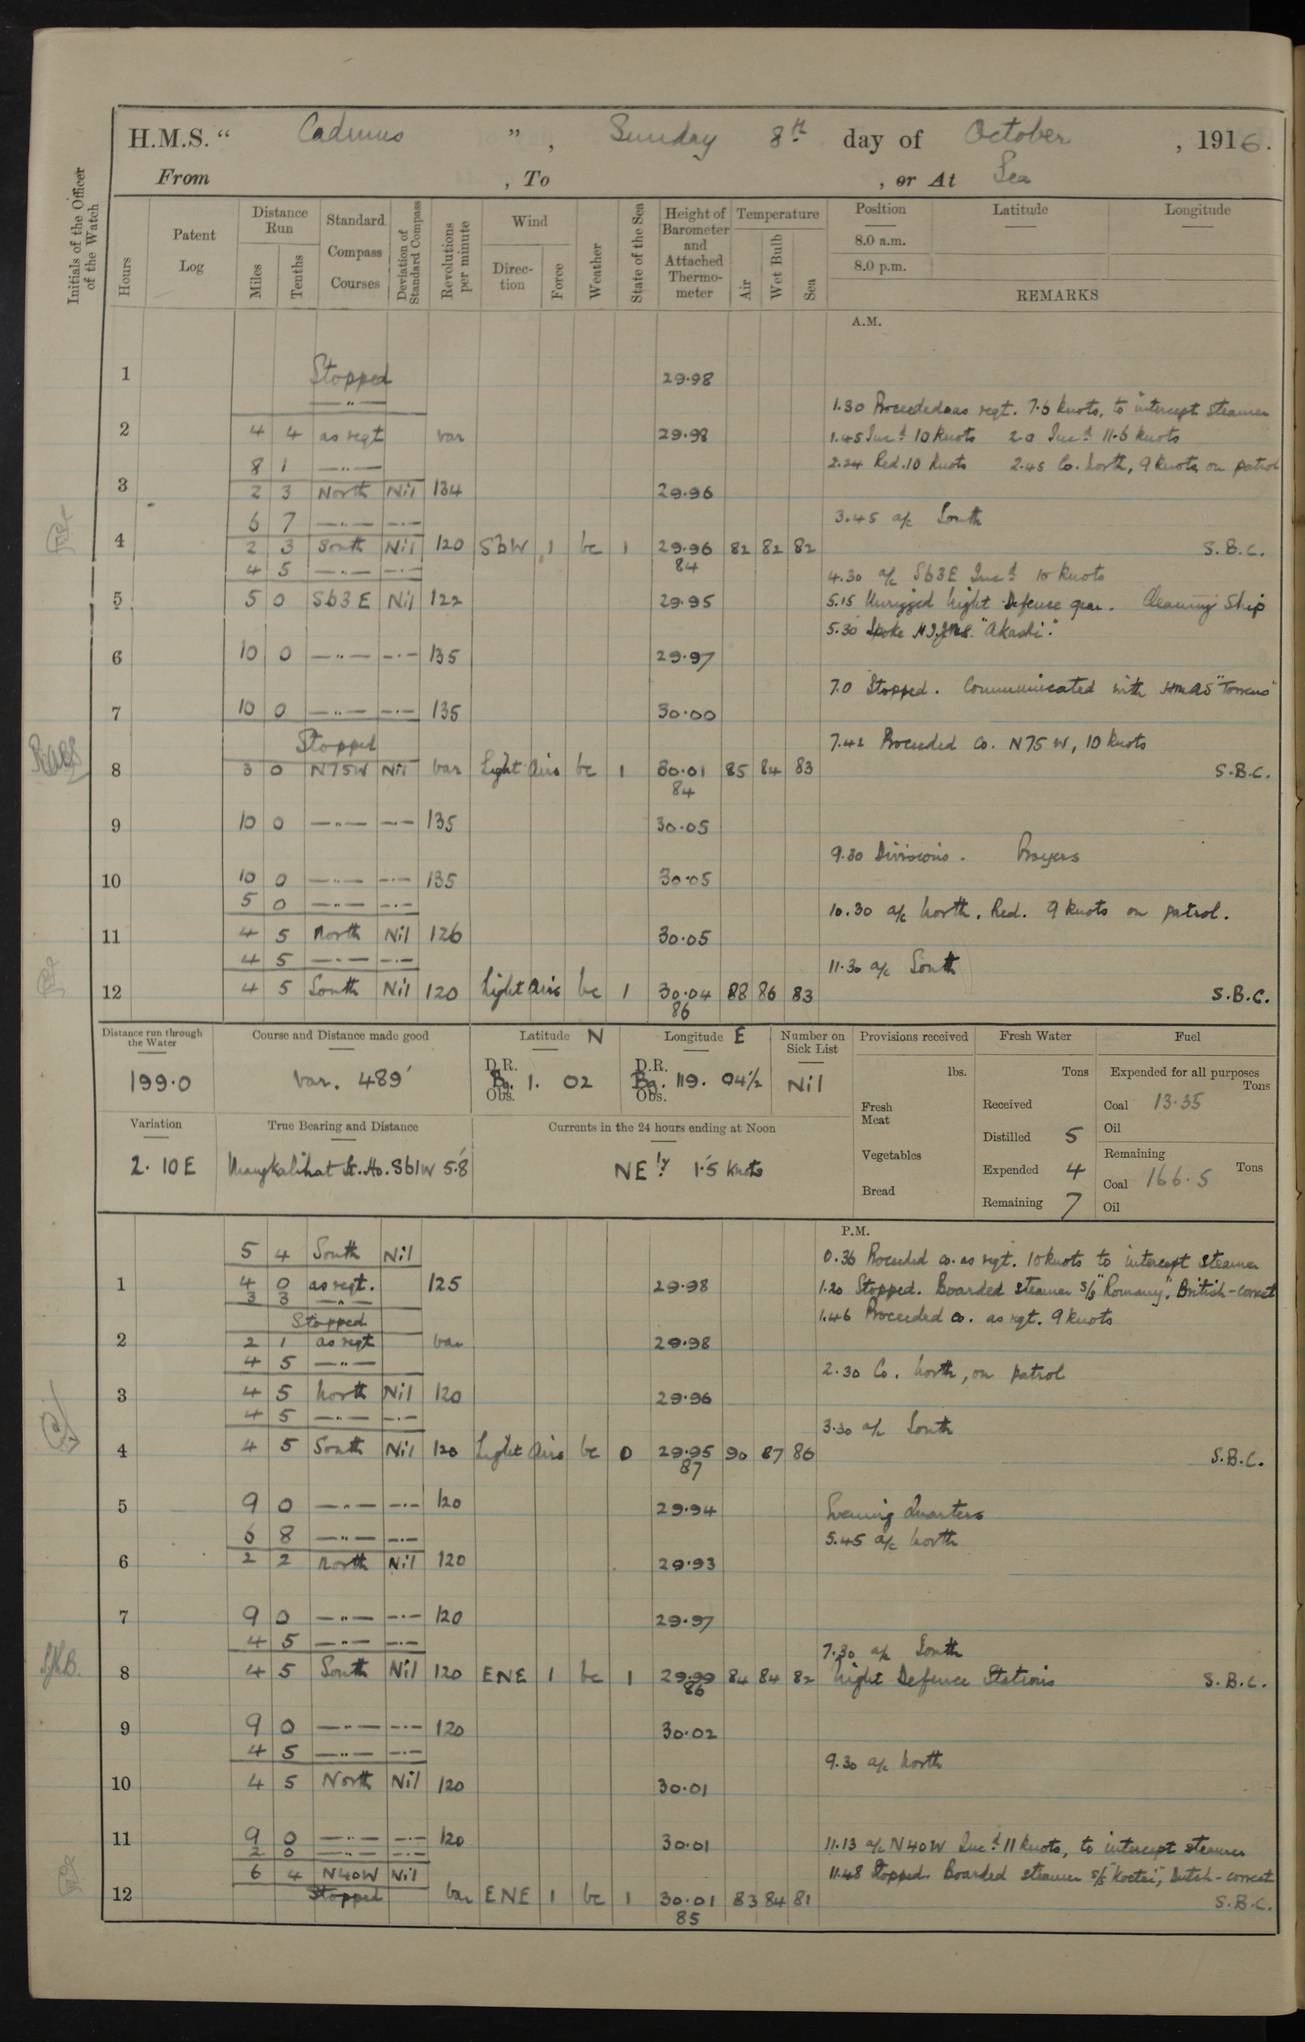 H.M.S. “ Cadmus ”, Sunday 8th day of October, 1916.
From , To , or At Sea
Initials of the Officer of the Watch
Hours
Patent Log
Distance Run
Miles
Tenths
Standard Compass Courses
Deviation of Standard Compass
Revolutions per minute
Wind
Direction
Force
Weather
State of the Sea
Height of Barometer and Attached Thermometer
Temperature
Air
Wet Bulb
Sea
Position Latitude Longitude
8.0 a.m.
8.0 p.m.
REMARKS
A.M.
1 Stopped 29.98
—"—
1.30 Proceeded as reqt. 7.5 knots, to intercept steamer
2 4 4 as reqt var 29.98 1.45 Incd 10 knots 2.0 Incd 11.5 knots
8 1 —"— 2.24 Red. 10 knots 2.45 Co. North, 9 knots on patrol
3 2 3 North Nil 134 29.96
6 7 —"— —"— 3.45 a/c South
4 2 3 South Nil 120 SbW 1 bc 1 29.96 82 82 82 S.B.C.
84
4 5 —"— —"— 4.30 a/c Sb3E Incd 10 knots
5 5 0 Sb3E Nil 122 29.95 5.15 Unrigged Night Defence gear. Cleaning Ship
5.30 Spoke H.I.J.M.S. "Akashi".
6 10 0 —"— —"— 135 29.97
7.0 Stopped. Communicated with HMAS "Torrens"
7 10 0 —"— —"— 135 30.00
Stopped 7.42 Proceeded Co. N75W, 10 knots
8 3 0 N75W Nil var Light Airs bc 1 30.01 85 84 83 S.B.C.
84
9 10 0 —"— —"— 135 30.05
9.30 Divisions. Prayers
10 10 0 —"— —"— 135 30.05
5 0 —"— —"— 10.30 a/c North, Red. 9 knots on patrol.
11 4 5 North Nil 126 30.05
4 5 —"— —"— 11.30 a/c South
12 4 5 South Nil 120 Light Airs bc 1 30.04 88 86 83 S.B.C.
86
Distance run through the Water
199.0
Course and Distance made good
Var. 489'
Latitude N
D.R. Bg. Obs. 1. 02
Longitude E
D.R. Bg. Obs. 119. 04½
Number on Sick List
Nil
Provisions received
lbs.
Fresh Meat
Vegetables
Bread
Fresh Water
Tons
Received
Distilled 5
Expended 4
Remaining 7
Fuel
Expended for all purposes
Tons
Coal 13.35
Oil
Remaining
Tons
Coal 166.5
Oil
Variation
2. 10 E
True Bearing and Distance
Mangkalihat Lt. Ho. Sb1W 5.8'
Currents in the 24 hours ending at Noon
NE ly 1.5 knots
P.M.
5 4 South Nil 0.36 Proceeded co. as reqt. 10 knots to intercept steamer
1 4 0 as reqt. 125 29.98 1.20 Stopped. Boarded steamer S/S "Romany". British - correct
3 3 —"—
Stopped 1.46 Proceeded co. as reqt. 9 knots
2 2 1 as reqt var 29.98
4 5 —"— 2.30 Co. North, on patrol
3 4 5 North Nil 120 29.96
4 5 —"— —"— 3.30 a/c South
4 4 5 South Nil 120 Light Airs bc 0 29.95 90 87 86 S.B.C.
87
5 9 0 —"— —"— 120 29.94 Evening Quarters
6 8 —"— —"— 5.45 a/c North
6 2 2 North Nil 120 29.93
7 9 0 —"— —"— 120 29.97
4 5 —"— —"— 7.30 a/c South
8 4 5 South Nil 120 ENE 1 bc 1 29.99 84 84 82 Night Defence Stations S.B.C.
86
9 9 0 —"— —"— 120 30.02
4 5 —"— —"— 9.30 a/c North
10 4 5 North Nil 120 30.01
11 9 0 —"— —"— 120 30.01 11.13 a/c N40W Incd 11 knots, to intercept steamer
2 0 —"— —"—
6 4 N40W Nil 11.48 Stopped. Boarded steamer S/S "Koetei", Dutch - correct
12 Stopped var ENE 1 bc 1 30.01 83 84 81 S.B.C.
85